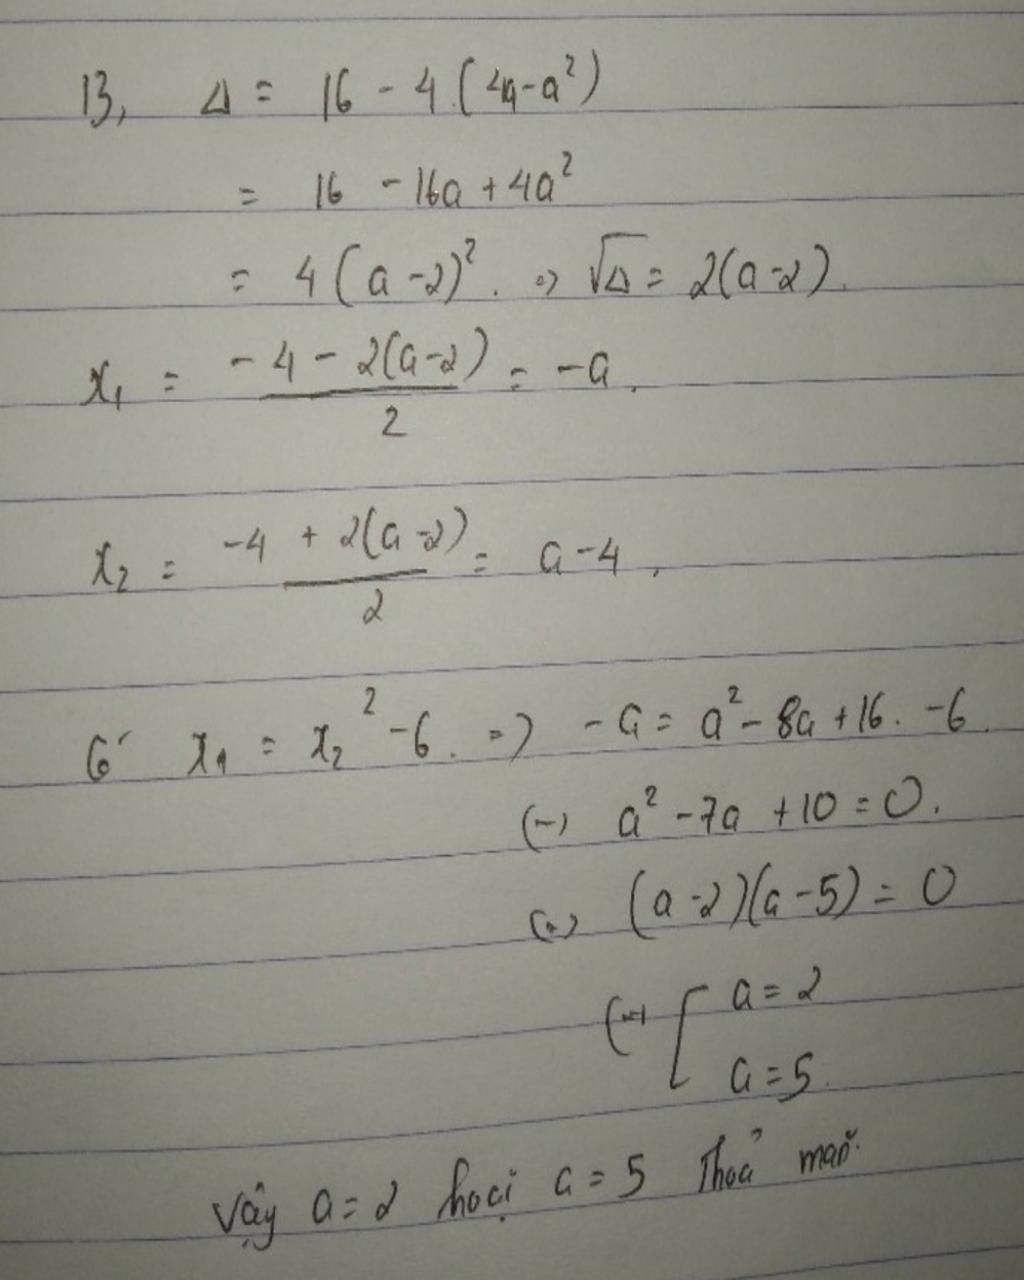 13, Δ = 16 - 4.(4a-a²)
= 16 - 16a + 4a²
= 4(a-2)². => √Δ = 2(a-2).
x₁ = (-4 - 2(a-2))/2 = -a.
x₂ = (-4 + 2(a-2))/2 = a-4.
Có x₁ = x₂² - 6. => -a = a² - 8a + 16. - 6.
(=) a² - 7a + 10 = 0.
(=) (a-2)(a-5) = 0
(=) [ a = 2
a = 5.
Vậy a = 2 hoặc a = 5 thoả mãn.